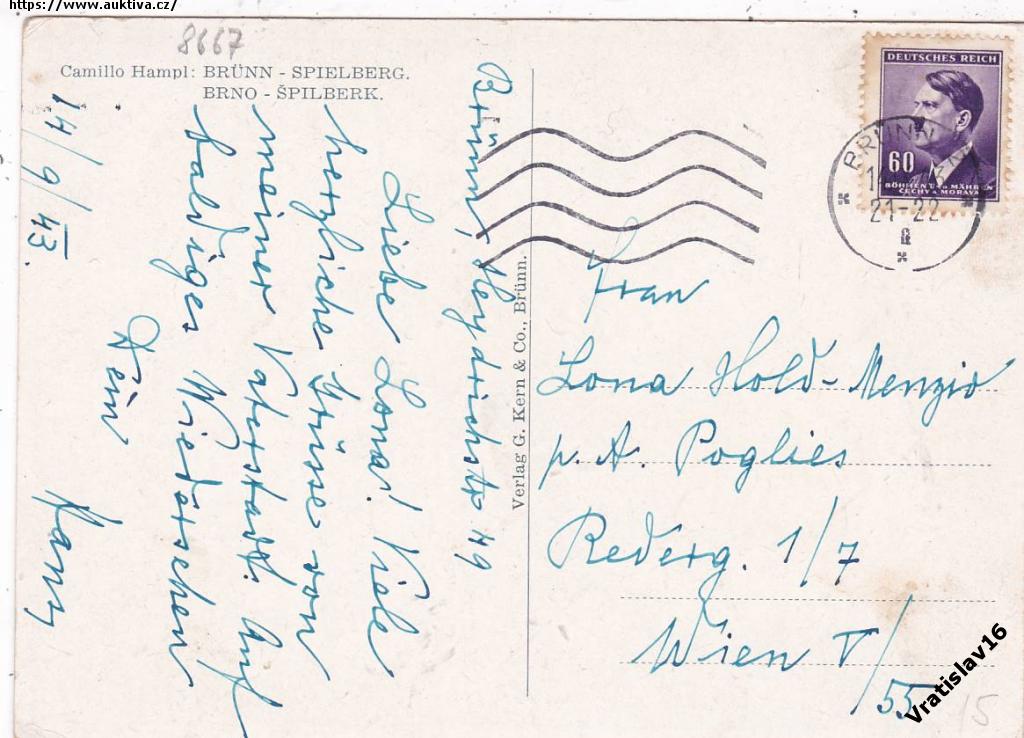 https://www.auktiva.cz/
8667
Camillo Hampl: BRÜNN - SPIELBERG.
BRNO - ŠPILBERK.
Brünn, Heydrichstr. 49
Liebe Lona! Viele
herzliche Grüsse von
meiner Vaterstadt. Auf
baldiges Wiedersehen
Dein
14/9/43.
Verlag G. Kern & Co., Brünn.
DEUTSCHES REICH
60
BÖHMEN UND MÄHREN
ČECHY A MORAVA
BRÜNN
21-22
Frau
Lona Hold-Menzio
p. A. Poglies
Rederg. 1/7
Wien V/
55
15
Vratislav16